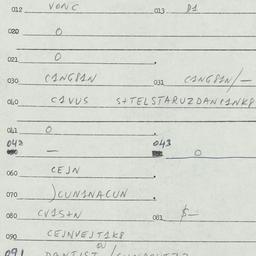 012 VONC 013 D1
020 O
021 O
030 C1NGP1N 031 C1NGP1N/–
040 C1VUS S+TELSTARUZDANC1NKP
041 O
042 – 043 O
060 CEJN
070 )CUN1NACUN
080 CV1S+N 081 $–
090 CEJNVEJT1KP
OU
091 DANTIST